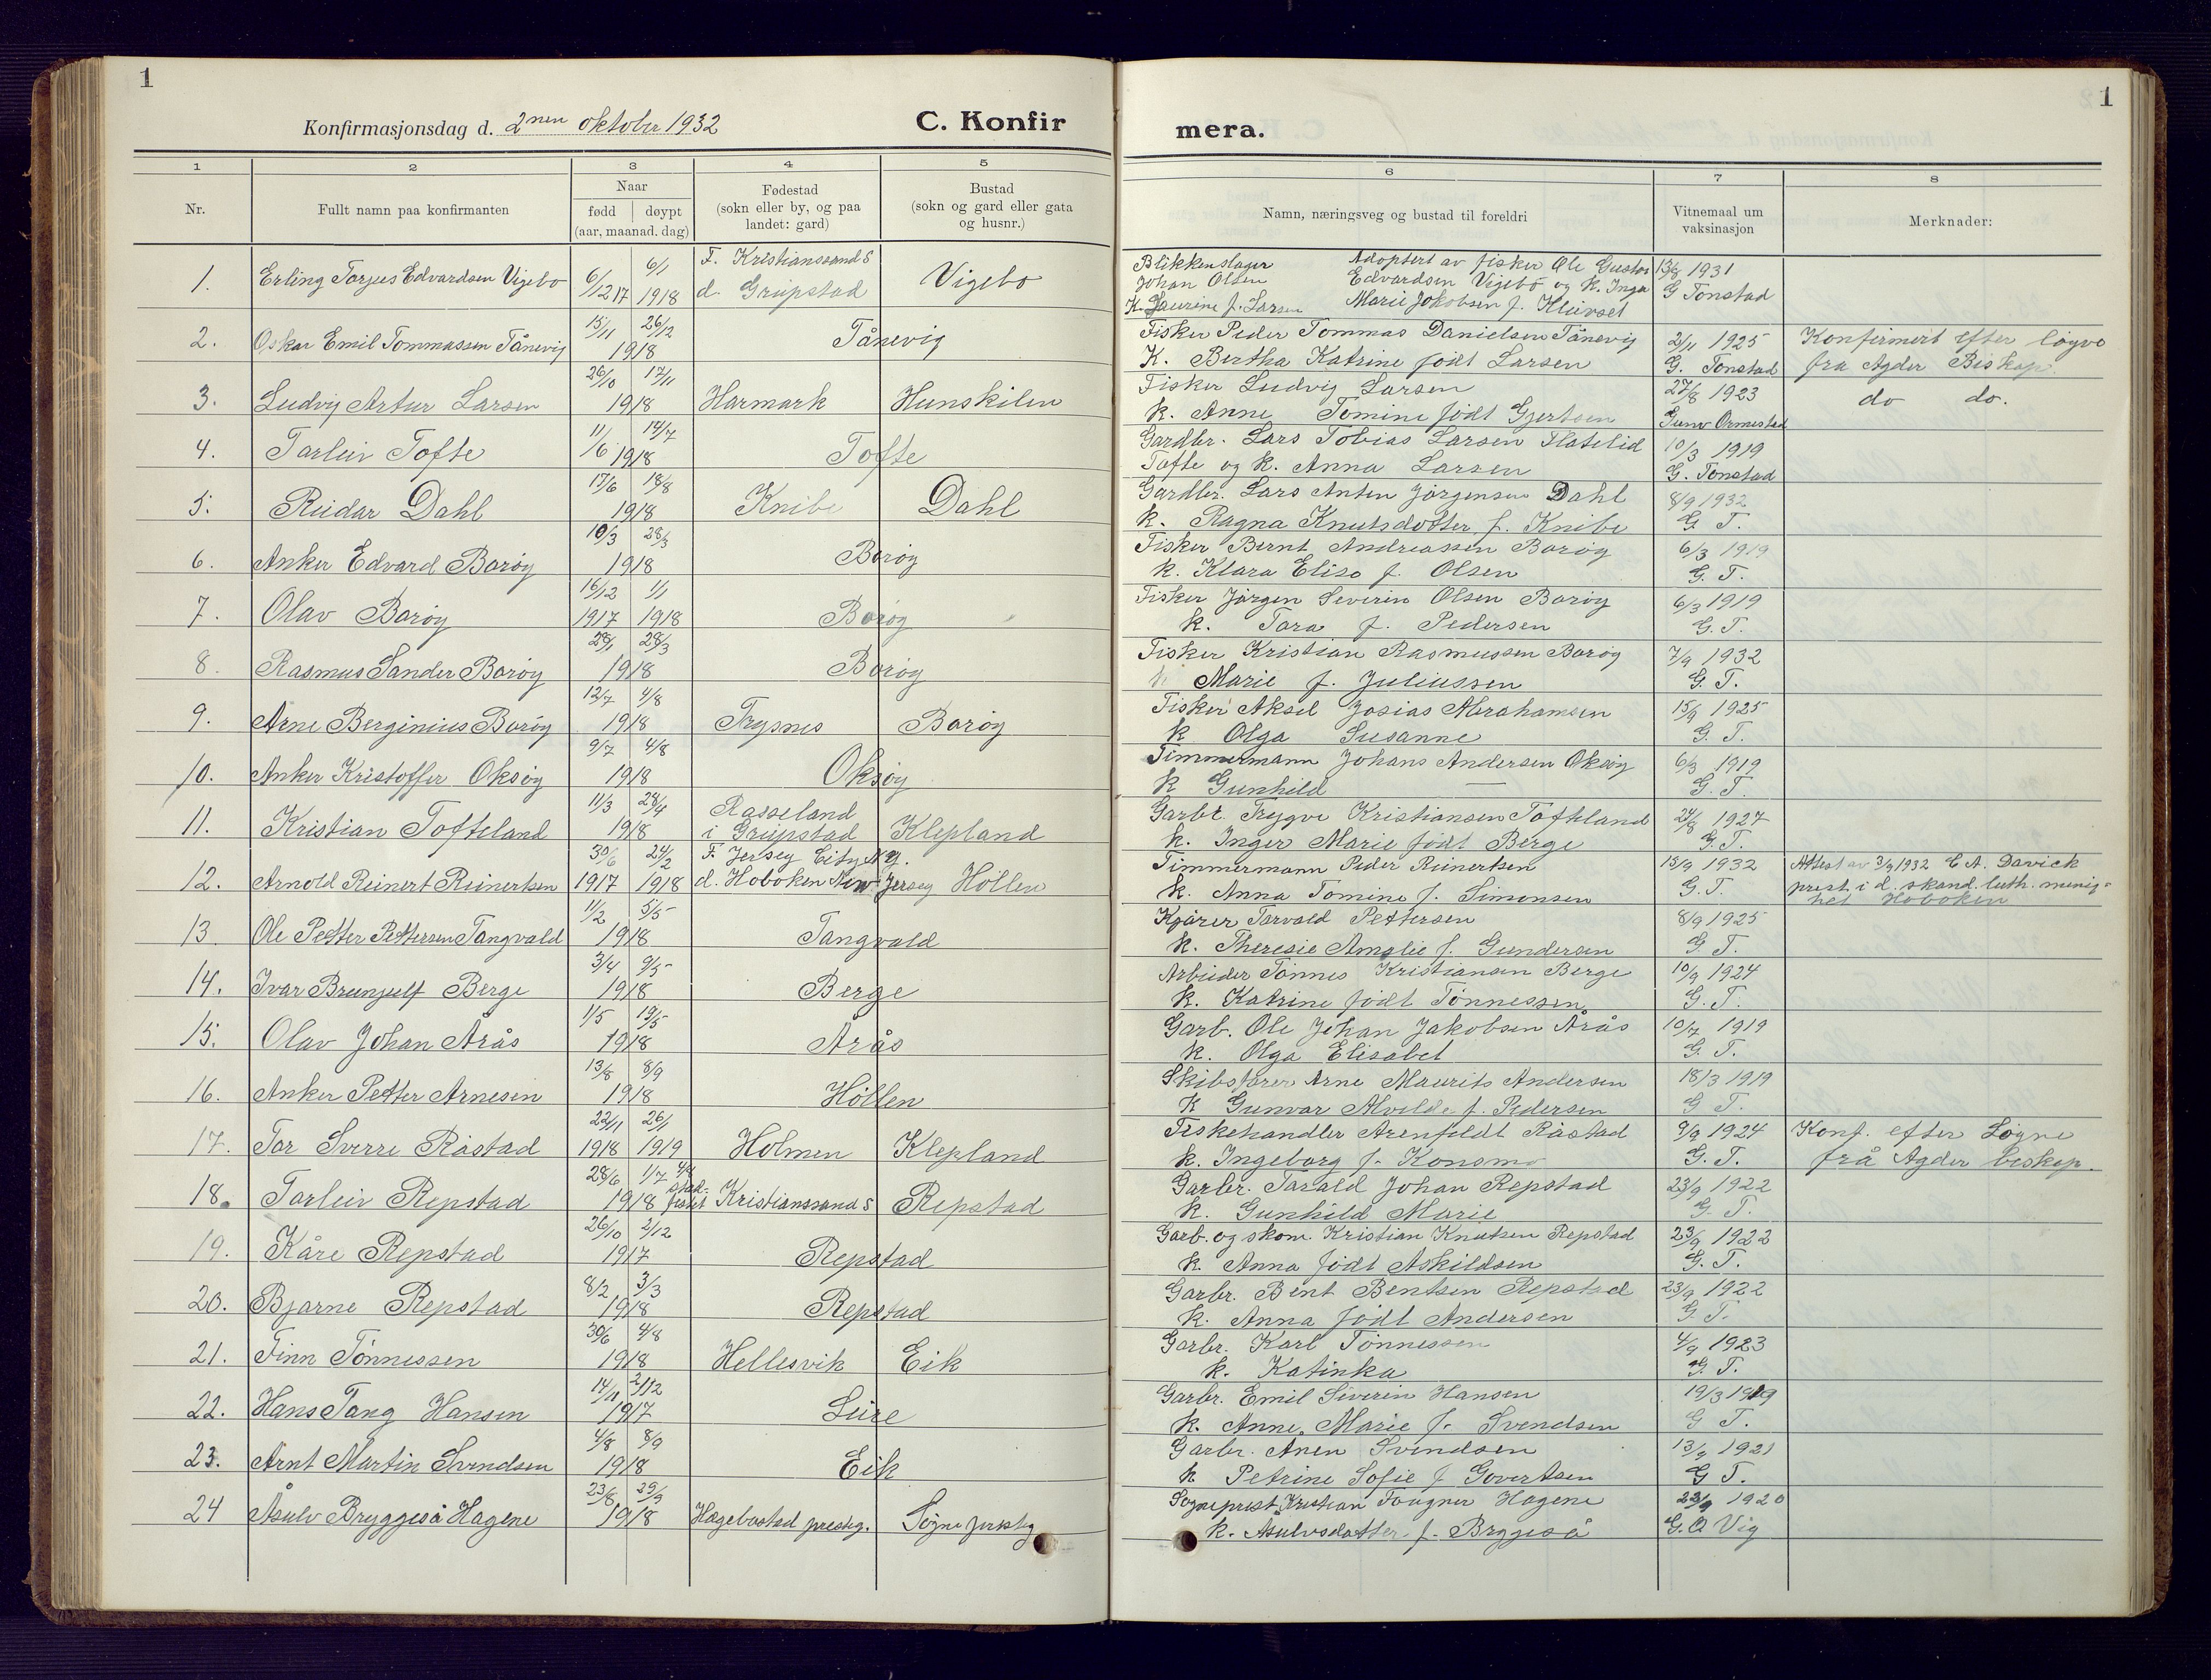 1
Konfirmasjonsdag d. 2nen oktober 1932
C. Konfir
mera.
1
1 2 3 4 5 6 7 8
Nr.
Fullt namn paa konfirmanten
Naar
fødd døypt
(aar, maanad. dag)
Fødestad
(sokn eller by, og paa
landet: gard)
Bustad
(sokn og gard eller gata
og husnr.)
Namn, næringsveg og bustad til foreldri
Vitnemaal um
vaksinasjon
Merknader:
1. Erling Torjus Edvardsen Vigebo 6/12 17 6/1 1918 F. Kristianssand S d. Greipstad Vigebo
Blikkenslager Johan Olsen K. Laurine f. Larsen
Adoptert av fisker Ole Gustav Edvardsen Vigebo og k. Inga Marie Jakobsen f. Kleivset
13/8 1931 G Tonstad
2. Oskar Emil Tommassen Tånevig 15/11 26/12 1918 Tånevig
Fisker Peder Tommas Danielsen Tånevig
K. Bertha Katrine født Larsen
2/11 1925 G. Tonstad
Konfirmert efter løyve
fra Agder Biskop.
3. Ludvig Artur Larsen 26/10 17/11 1918 Harmark Hunskilen
Fisker Ludvig Larsen
k. Anne Tomine født Gjertsen
27/8 1923 Gunv Ormestad
do do.
4. Torleiv Tofte 11/6 14/7 1918 Tofte
Gardbr. Lars Tobias Larsen Flatelid
Tofte og k. Anna Larsen
10/3 1919 G. Tonstad
5. Reidar Dahl 17/6 18/8 1918 Knibe Dahl
Gardbr. Lars Anten Jørgensen Dahl
k. Ragna Knutsdotter f. Knibe
8/9 1932 G. T.
6. Anker Edvard Borøy 10/3 28/3 1918 Borøy
Fisker Bernt Andreassen Borøy
k. Klara Elise f. Olsen
6/3 1919 G. T.
7. Olav Borøy 16/12 1917 1/1 1918 Borøy
Fisker Jørgen Severin Olsen Borøy
k. Tora f. Pedersen
6/3 1919 G. T.
8. Rasmus Sander Borøy 28/1 28/3 1918 Borøy
Fisker Kristian Rasmussen Borøy
k Marie f. Juliussen
7/9 1932 G. T.
9. Arne Berginius Borøy 12/7 4/8 1918 Trysnes Borøy
Fisker Aksel Josias Abrahamsen
k Olga Susanne
15/9 1925 G. T.
10. Anker Kristoffer Oksøy 9/7 4/8 1918 Oksøy
Timmermann Johans Andersen Oksøy
k Gunhild —
6/3 1919 G. T.
11. Kristian Tofteland 11/3 28/4 1918 Rasseland i Greipstad Klepland
Garbr. Trygve Kristiansen Tofteland
k. Inger Marie født Berge
24/8 1927 G. T.
12. Arnold Reinert Reinertsen 30/6 1917 24/2 1918 F. Jersey City N.Y. d. Hoboken New-Jersey Høllen
Timmermann Peder Reinertsen
k. Anna Tomine f. Simonsen
15/9 1932 G. T.
Attest av 3/9 1932 C A. Davick
prest i d. skand. luth. menig-
het Hoboken
13. Ole Petter Pettersen Tangvald 11/2 5/5 1918 Tangvald
Kjører Torvald Pettersen
k. Theresie Amalie f. Gundersen
8/9 1925 G. T.
14. Ivar Brunjulf Berge 3/4 9/5 1918 Berge
Arbeider Tønnes Kristiansen Berge
k. Katrine født Tønnessen
10/9 1924 G. T.
15. Olav Johan Årås 1/5 19/5 1918 Årås
Garb. Ole Johan Jakobsen Årås
k. Olga Elisabet
10/7 1919 G. T.
16. Anker Petter Arnesen 13/8 8/9 1918 Høllen
Skibsfører Arne Maurits Andersen
K Gunvar Alvilde f. Pedersen
18/3 1919 G T.
17. Tor Sverre Råstad 22/11 1918 26/1 1919 Holmen Klepland
Fiskehandler Arenfeldt Råstad
k. Ingeborg f. Konsmo
9/9 1924 G. T.
Konf. efter Løgne
frå Agder biskop.
18. Torleiv Repstad 28/6 1/7 4/8 1918 Kristianssand S Repstad
Garbr. Tarald Johan Repstad
k. Gunhild Marie
23/9 1922 G. T.
19. Kåre Repstad 26/10 2/12 1917 Repstad
Garb. og skom. Kristian Knutsen Repstad
k. Anna født Askildsen
23/9 1922 G. T.
20. Bjarne Repstad 8/2 3/3 1918 Repstad
Garbr. Bent Bentsen Repstad
k. Anna født Andersen
23/9 1922 G. T.
21. Finn Tønnessen 30/6 4/8 1918 Hellesvik Eik
Garbr. Karl Tønnessen
k. Katinka
4/9 1923 G. T.
22. Hans Tang Hansen 14/11 2/12 1917 Leire
Garbr. Emil Severin Hansen
k. Anne. Marie f. Svendsen
19/3 1919 G T.
23. Arnt Martin Svendsen 4/8 8/9 1918 Eik
Garbr. Anen Svendsen
k Petrine Sofie f Govertsen
13/9 1921 G T.
24 Åsulv Bryggeså Hagene 23/8 29/9 1918 Hægebostad prestg. Søgne prestg
Sogneprest Kristian Fougner Hagene
k. Asulvsdatter f. Bryggeså
23/9 1920 G. O Vig